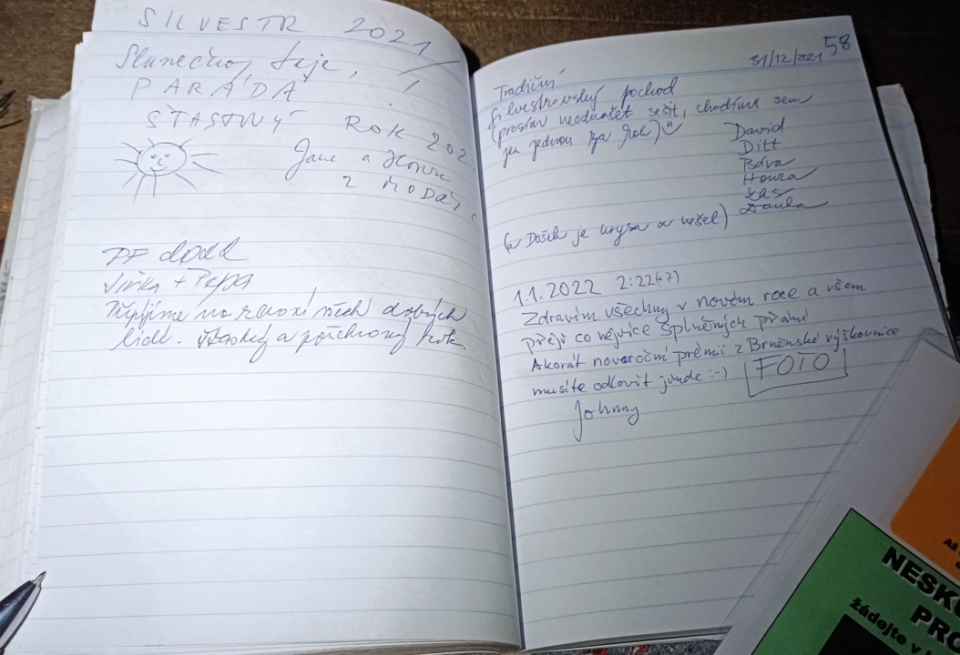 SILVESTR 2021
Slunečno, fuje,
PARÁDA
ŠŤASTNÝ ROK 202
Jane a
z
PF 2022
Jirka + Pepa
Připíjíme na zdraví všech dobrých
lidí. Šťastný a pěkný rok
58
31/12/2021
Tradiční
silvestrovský pochod
(prosím neodnášet sešit, chodíme sem
jen jednou za rok) ☺
David
Ditt
Bára
Honza
(a Dašek je krysa a nešel)
1.1.2022 2:22(47)
Zdravím všechny v novém roce a všem
přeji co nejvíce splněných přání
Akorát novoroční prémii z Brněnské výškovnice
musíte odlovit jinde :-) FOTO
Johnny
NESK
PRO
žádejte v